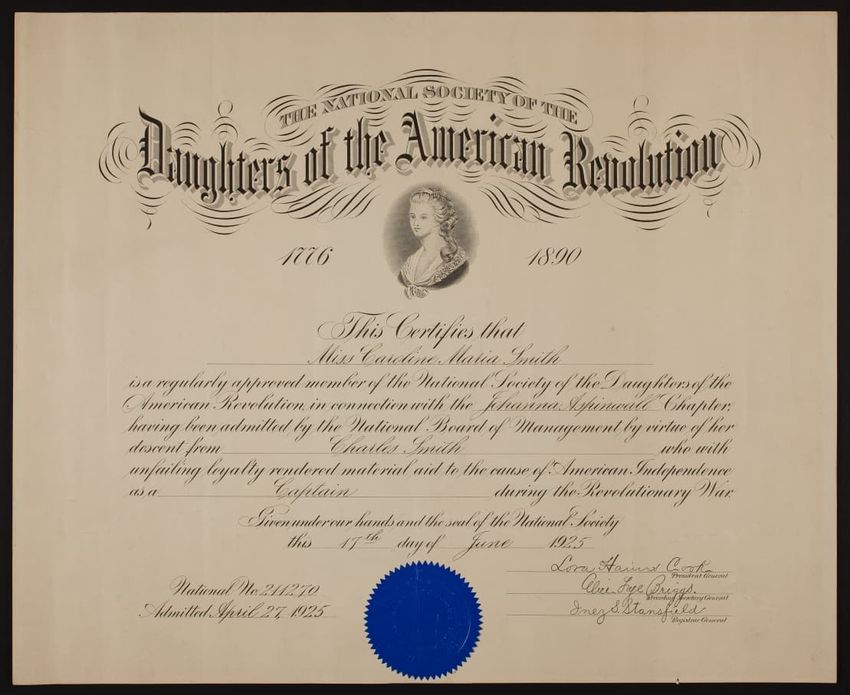 THE NATIONAL SOCIETY OF THE
Daughters of the American Revolution
1776 1890
This Certifies that
Miss Caroline Maria Smith
is a regularly approved member of the National Society of the Daughters of the
American Revolution, in connection with the "Johanna Aspinwall" Chapter,
having been admitted by the National Board of Management by virtue of her
descent from Charles Smith who with
unfailing loyalty rendered material aid to the cause of American Independence
as a Captain during the Revolutionary War.
Given under our hands and the seal of the National Society
this 17th day of June 1925
Lora Haines Cook
President General
National No. 211270
Alice Frye Briggs.
Recording Secretary General
Admitted April 27, 1925
Inez S. Stansfield
Registrar General